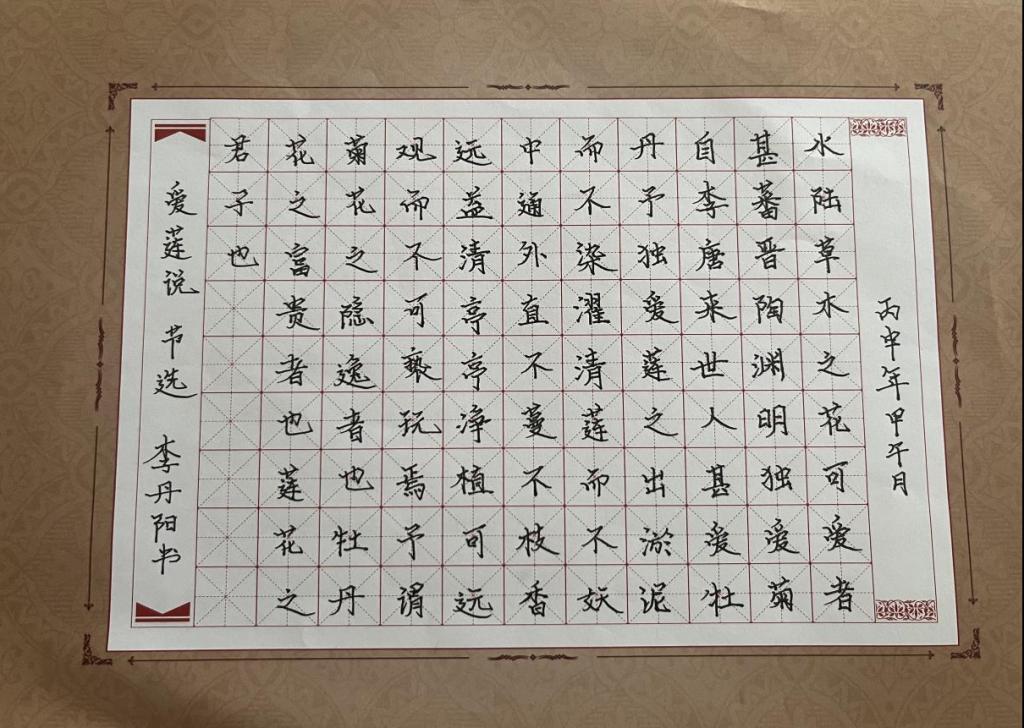 丙申年甲午月
水陆草木之花可爱者
甚蕃晋陶渊明独爱菊
自李唐来世人甚爱牡
丹予独爱莲之出淤泥
而不染濯清莲而不妖
中通外直不蔓不枝香
远益清亭亭净植可远
观而不可亵玩焉予谓
菊花之隐逸者也牡丹
花之富贵者也莲花之
君子也
爱莲说 节选 李丹阳书